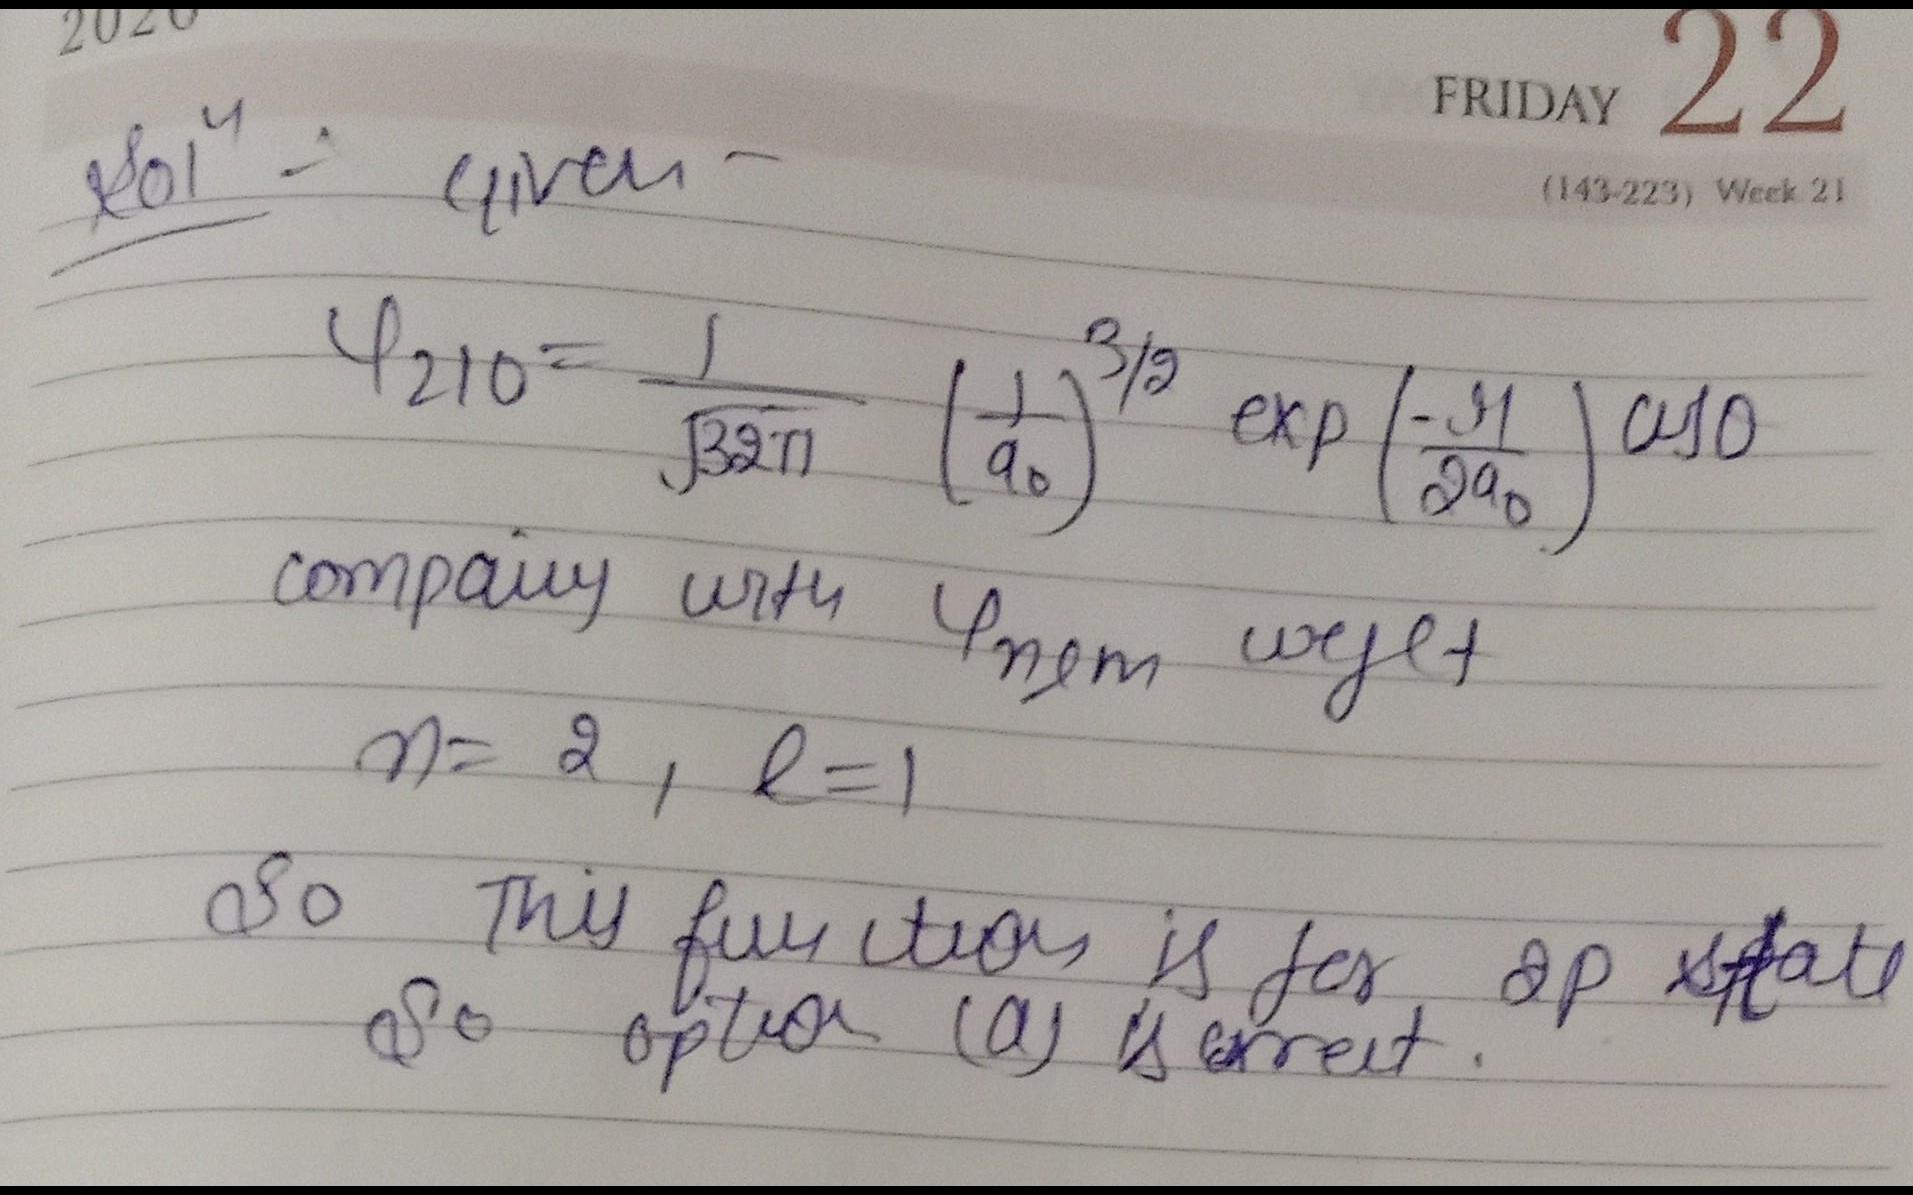 2020
FRIDAY 22
(143-223) Week 21
Solⁿ - Given -
Ψ210 = 1/√32π (1/a0)^3/2 exp(-r/2a0) cosθ
comparing with Ψnlm we get
n= 2 , l=1
So This function is for 2p state
So option (a) is correct.